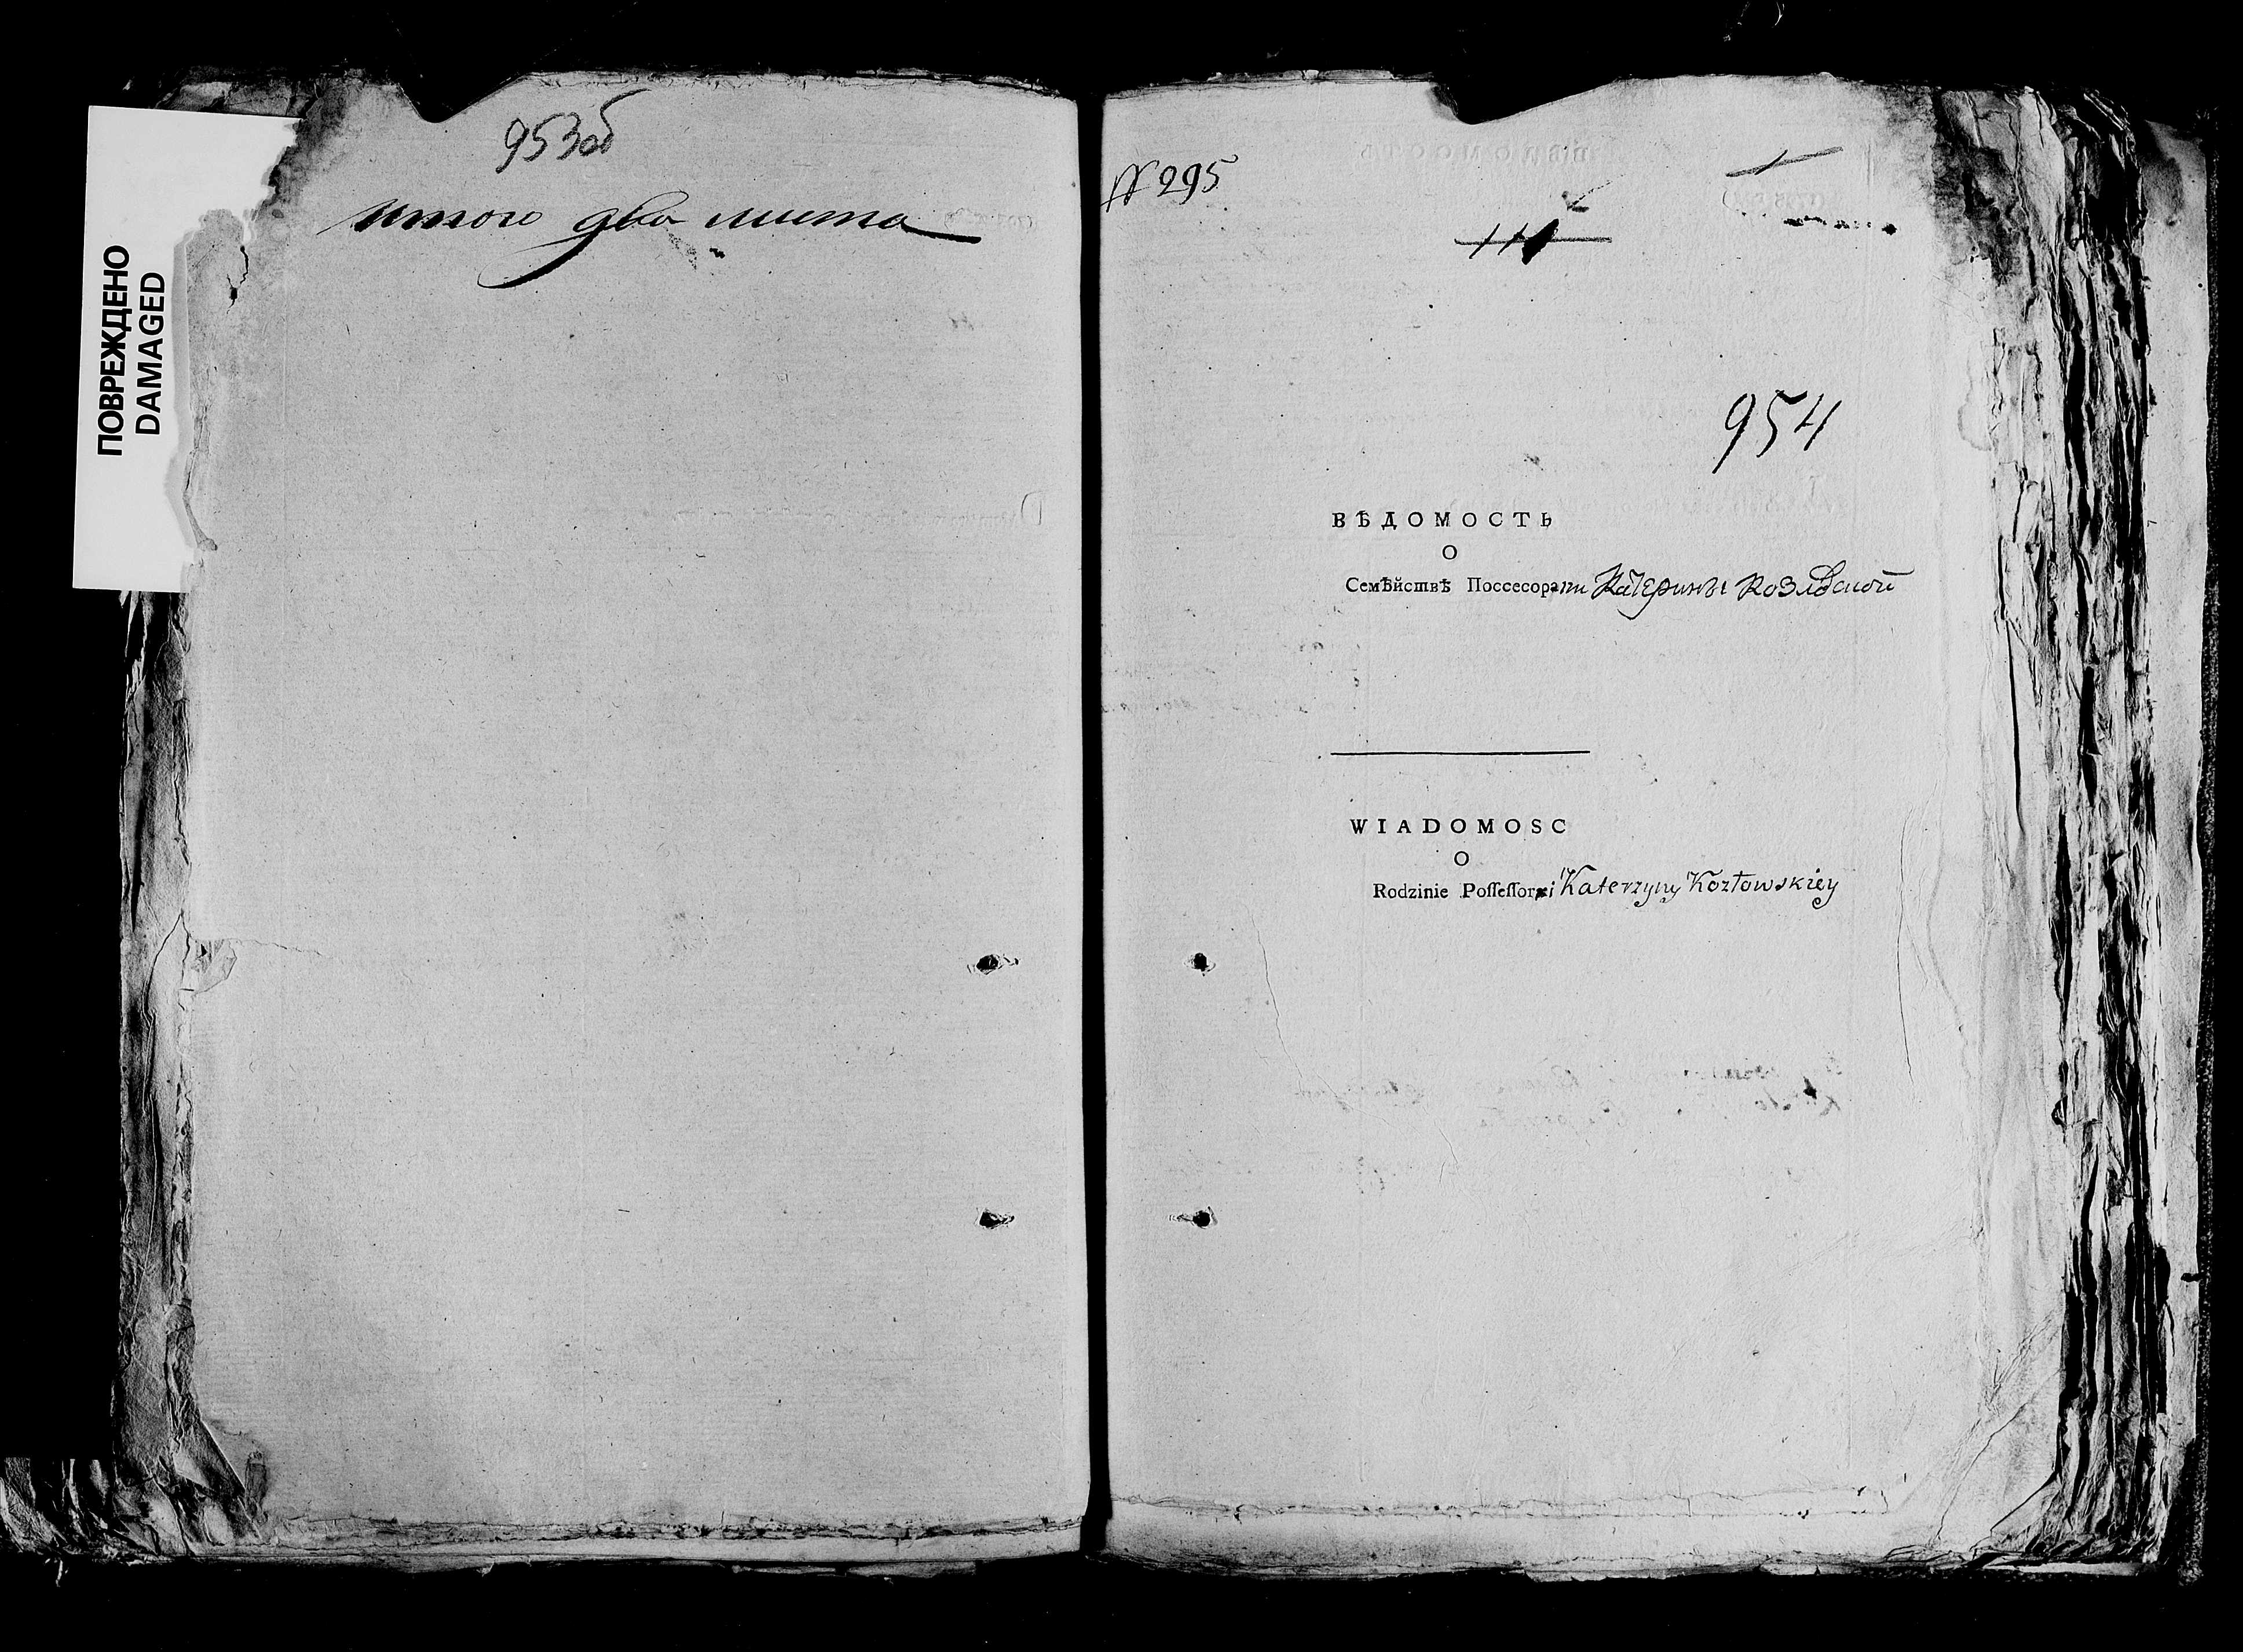 ПОВРЕЖДЕНО
DAMAGED
953об
итого два листа
N 295
111
954
ВѢДОМОСТЬ
О
Семѣйствѣ Поссесорки Катерины Козловской
WIADOMOSC
O
Rodzinie Poſſeſſorki Katerzyny Kozłowskiey